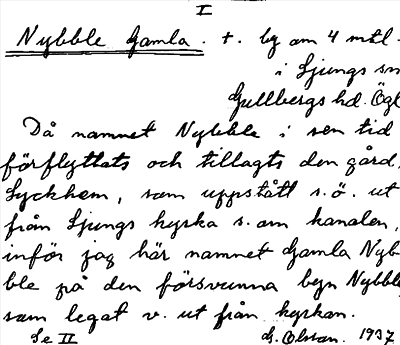 I
Nybble Gamla. †. by om 4 mtl
i Ljungs sn
Gullbergs hd. Ögl
Då namnet Nybble i sen tid
förflyttats och tillagts den gård,
Lyckhem, som uppstått s.ö. ut
från Ljungs kyrka s. om kanalen,
inför jag här namnet Gamla Nyb-
ble på den försvunna byn Nybble
som legat v. ut från kyrkan.
Se II G. Olson. 1937